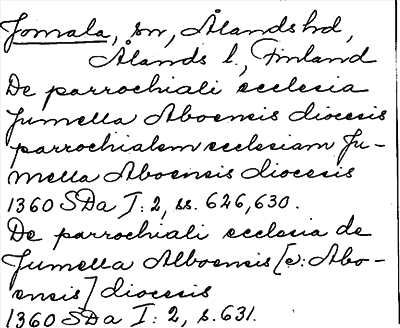 Jomala, sn, Ålands hd,
Ålands l., Finland
De parrochiali ecclesia
Jumella Aboensis diocesis
parrochialem ecclesiam Ju-
mella Aboensis diocesis
1360 SDa I: 2, ss. 626, 630.
De parrochiali ecclesia de
Jumella Alboensis [ɔ: Abo-
ensis] diocesis
1360 SDa I: 2, s. 631.